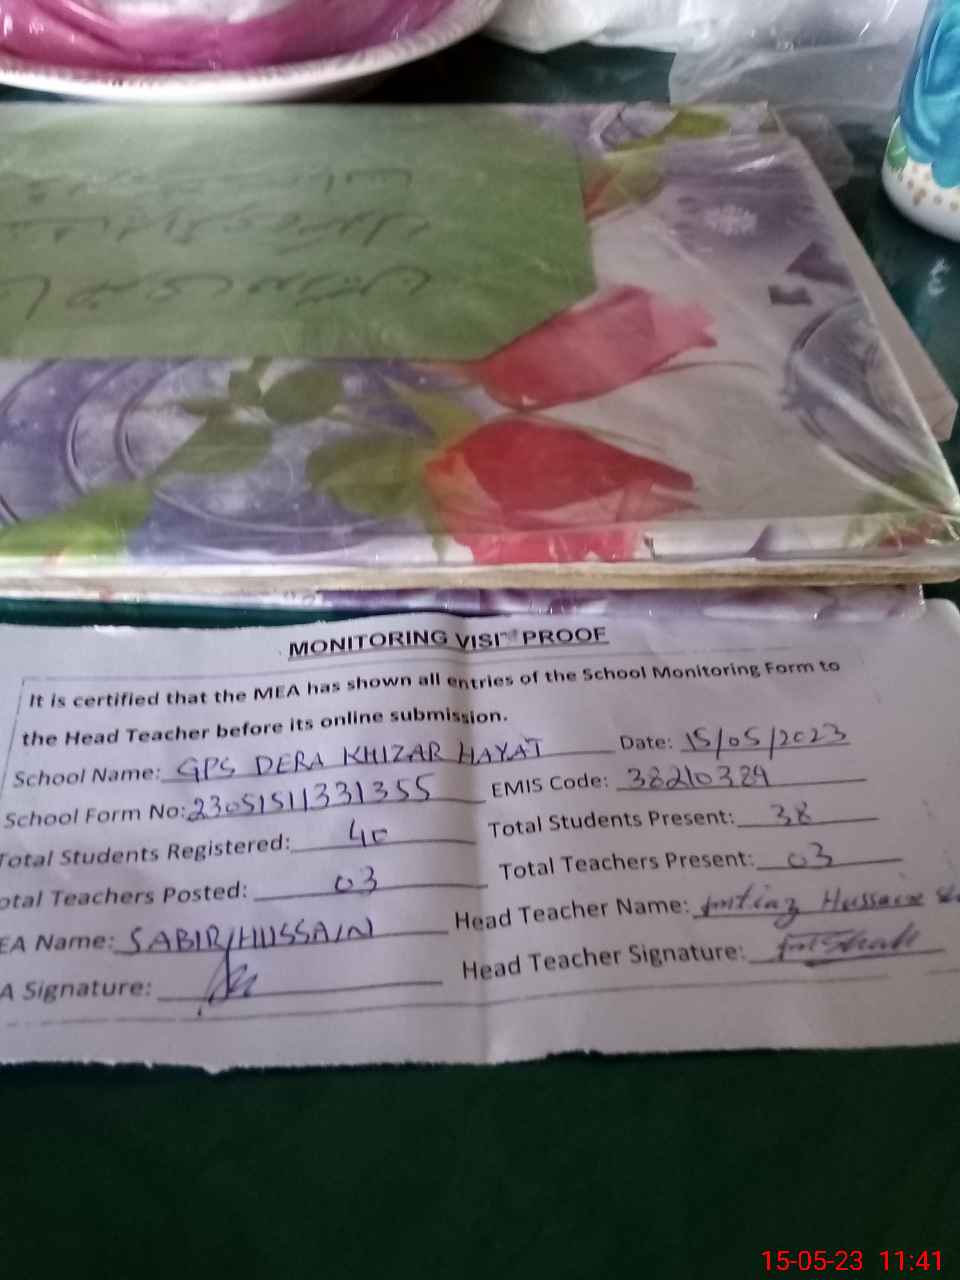 MONITORING VISIT PROOF
It is certified that the MEA has shown all entries of the School Monitoring Form to
the Head Teacher before its online submission.
School Name: GPS DERA KHIZAR HAYAT Date: 15/05/2023
School Form No: 23051511331355 EMIS Code: 38210389
Total Students Registered: 40 Total Students Present: 38
otal Teachers Posted: 03 Total Teachers Present: 03
EA Name: SABIR HUSSAIN Head Teacher Name: Imtiaz Hussain
A Signature: Head Teacher Signature:
15-05-23 11:41